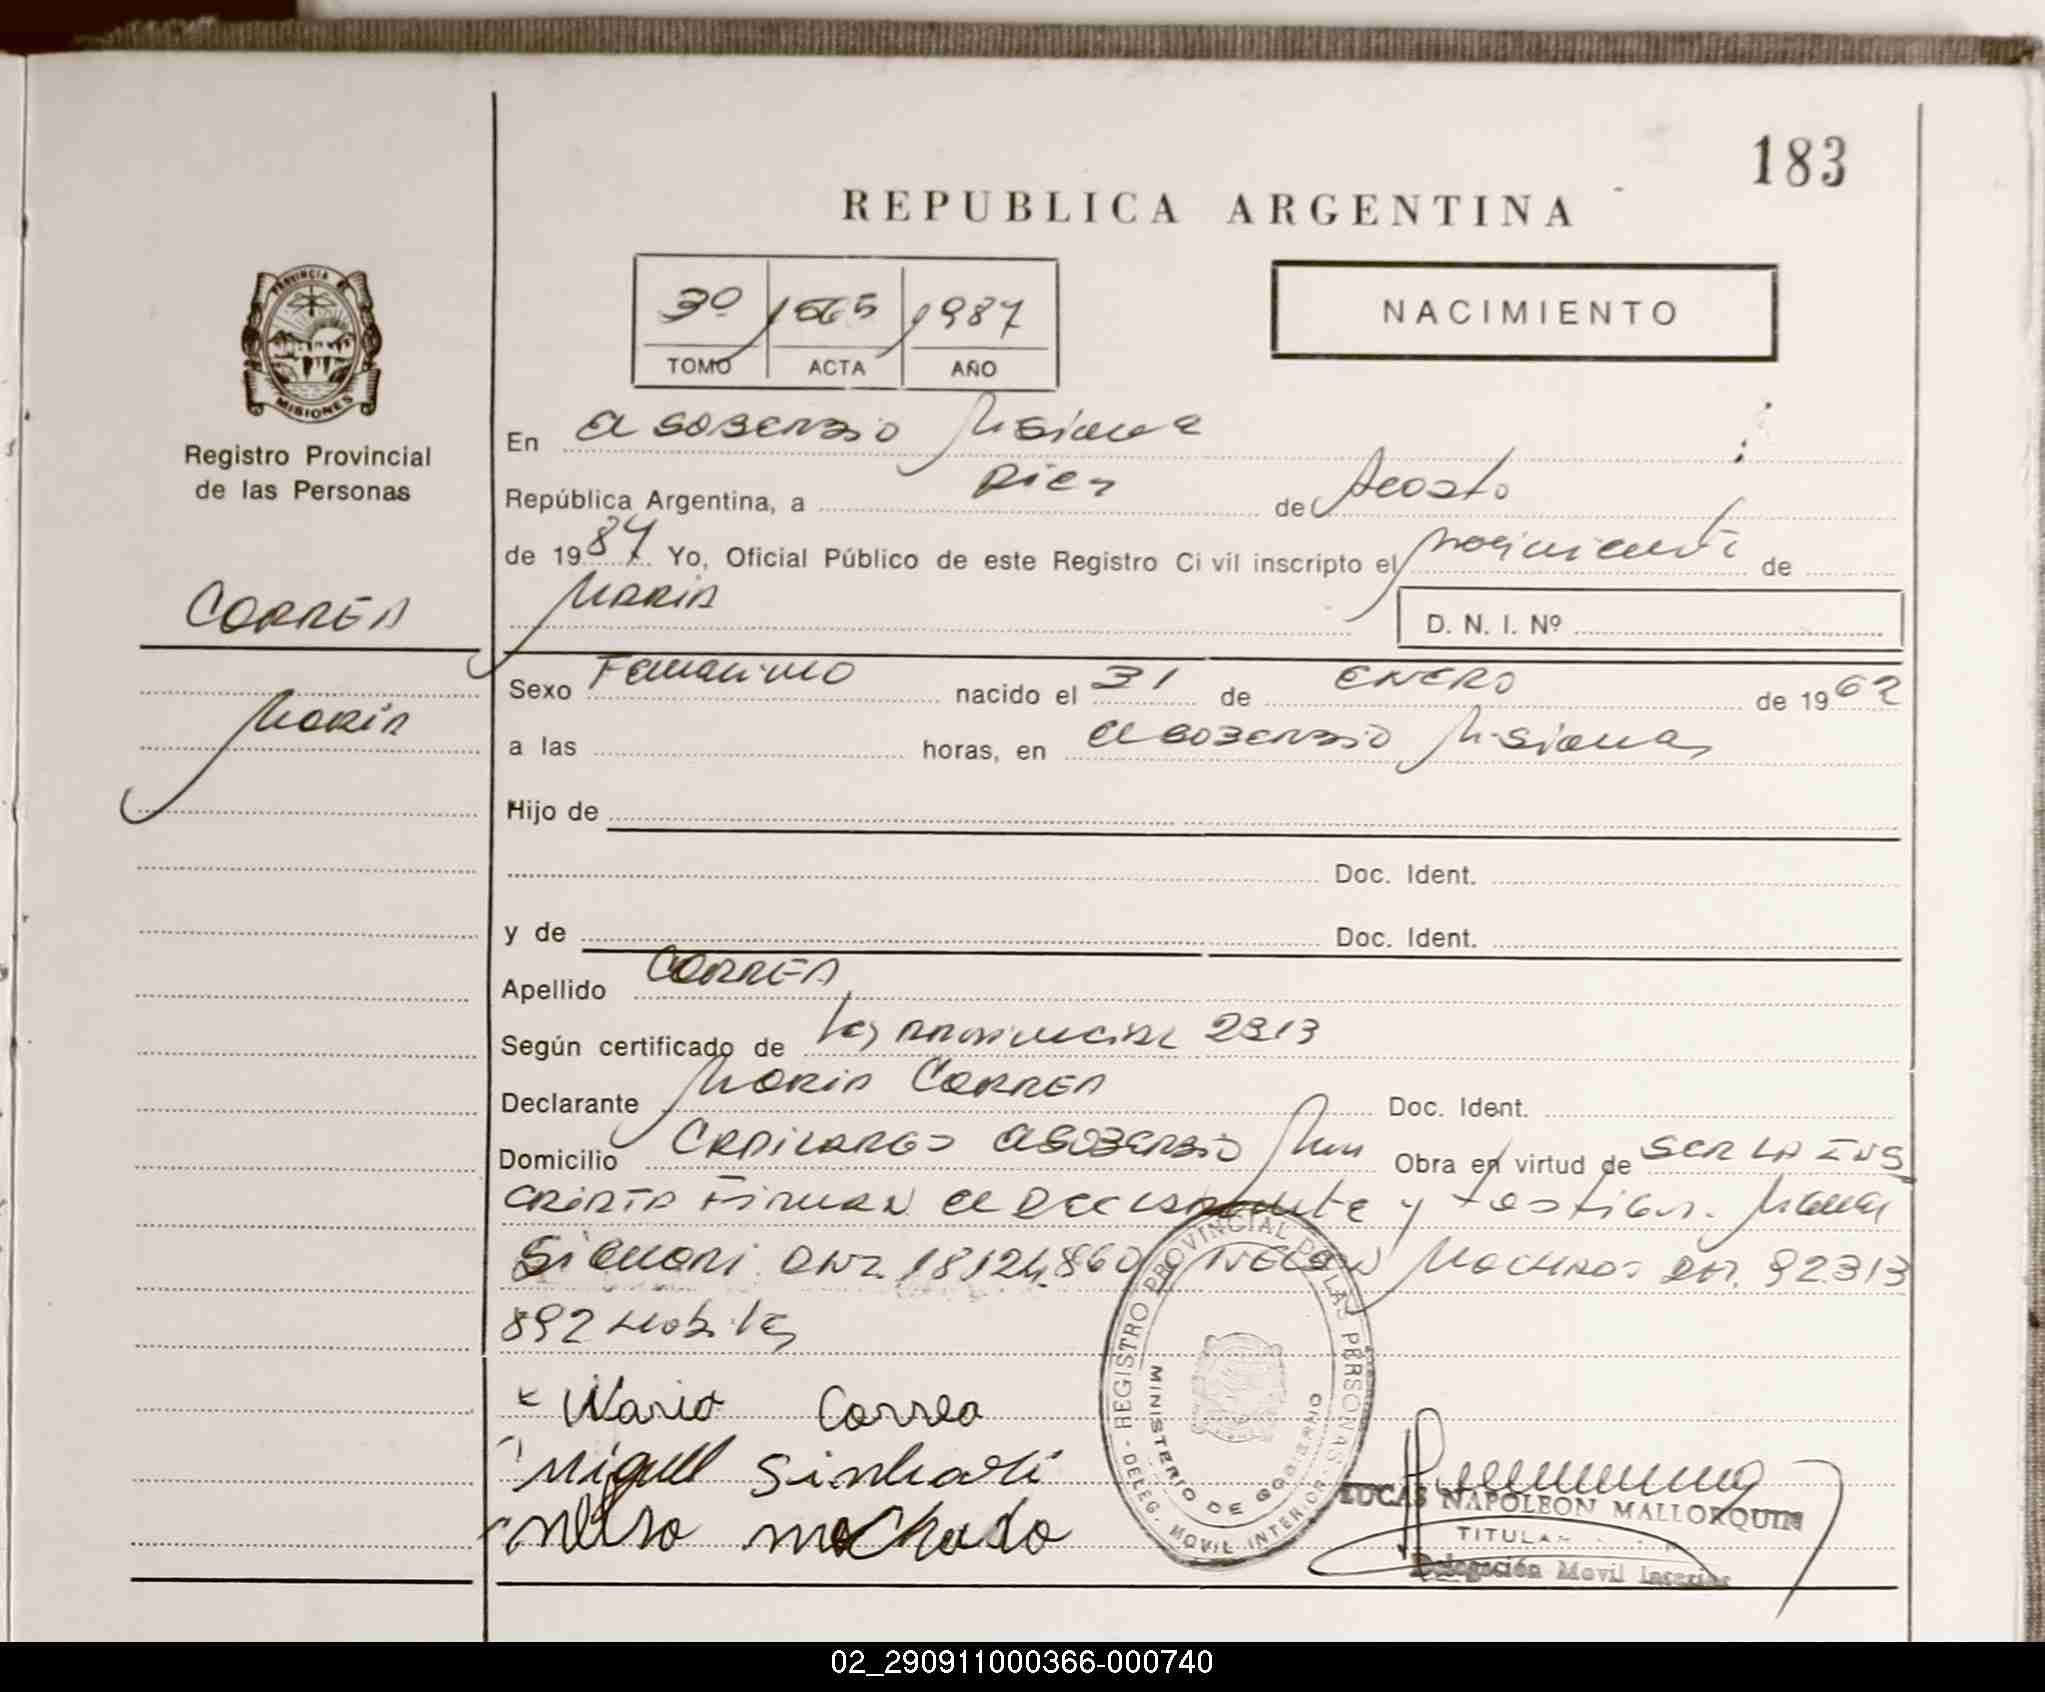 183
REPUBLICA ARGENTINA
PROVINCIA DE
MISIONES
Registro Provincial
de las Personas
3º 1565 1987
TOMO ACTA AÑO
NACIMIENTO
En El Soberbio Misiones
República Argentina, a Diez de Agosto
de 1987 Yo, Oficial Público de este Registro Civil inscripto el nacimiento de
Maria
D. N. I. Nº
CORREA
Maria
Sexo Femenino nacido el 31 de ENERO de 1962
a las horas, en El Soberbio Misiones
Hijo de
Doc. Ident.
y de Doc. Ident.
Apellido CORREA
Según certificado de Ley Provincial 2313
Declarante Maria CORREA Doc. Ident.
Domicilio El Soberbio Obra en virtud de SER LA INS
CRIPTA Firman el Declarante y testigos.
DNI. 18.124.860 Machado DNI. 92313
892 Habiles
Maria Correa
Miguel
machado
REGISTRO PROVINCIAL DE LAS PERSONAS
MINISTERIO DE GOBIERNO
DELEG. MOVIL INTERIOR
LUCAS NAPOLEON MALLORQUIN
TITULAR
Delegación Movil Interior
02_290911000366-000740